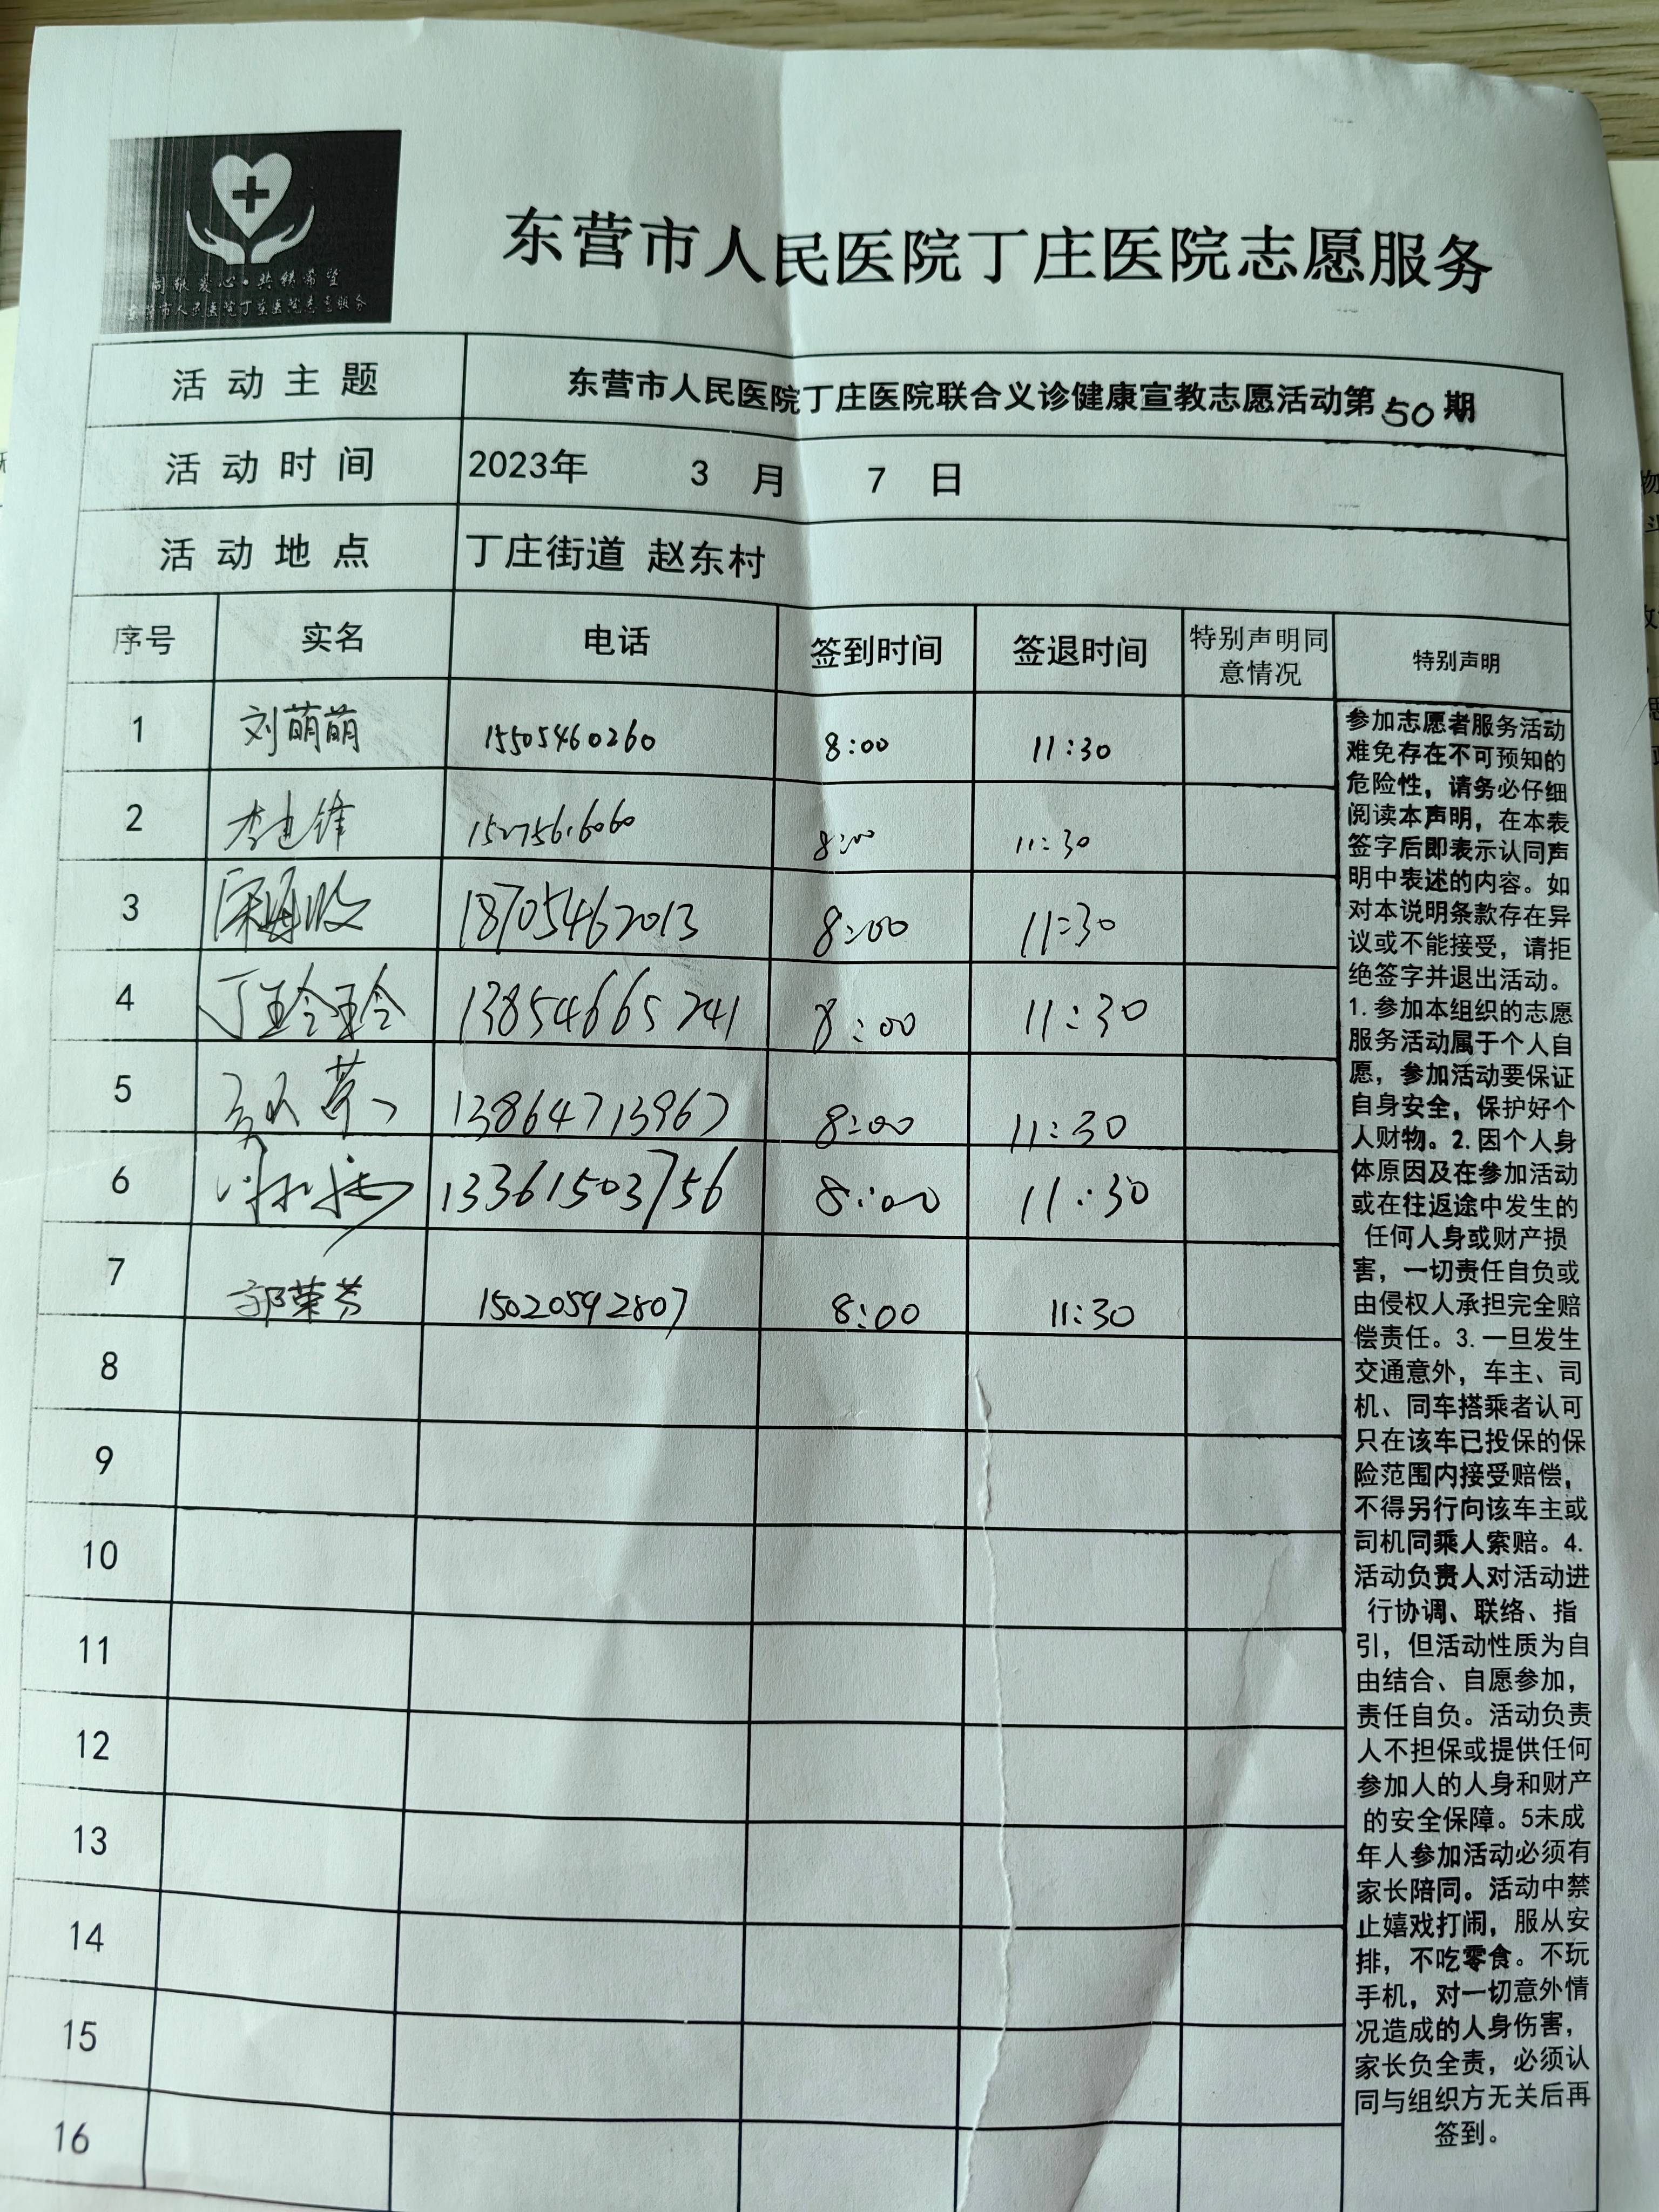 同献爱心·共铸希望
东营市人民医院丁庄医院志愿服务
东营市人民医院丁庄医院志愿服务
活动主题 东营市人民医院丁庄医院联合义诊健康宣教志愿活动第50期
活动时间 2023年 3 月 7 日
活动地点 丁庄街道 赵东村
序号 实名 电话 签到时间 签退时间 特别声明同意情况 特别声明
1 刘萌萌 15505460260 8:00 11:30
2 李建锋 8:00 11:30
3 18705462013 8:00 11:30
4 丁玲玲 13854665241 8:00 11:30
5 13864713967 8:00 11:30
6 13361503756 8:00 11:30
7 郭荣芳 15020592807 8:00 11:30
8
9
10
11
12
13
14
15
16
参加志愿者服务活动
难免存在不可预知的
危险性，请务必仔细
阅读本声明，在本表
签字后即表示认同声
明中表述的内容。如
对本说明条款存在异
议或不能接受，请拒
绝签字并退出活动。
1.参加本组织的志愿
服务活动属于个人自
愿，参加活动要保证
自身安全，保护好个
人财物。2.因个人身
体原因及在参加活动
或在往返途中发生的
任何人身或财产损
害，一切责任自负或
由侵权人承担完全赔
偿责任。3.一旦发生
交通意外，车主、司
机、同车搭乘者认可
只在该车已投保的保
险范围内接受赔偿，
不得另行向该车主或
司机同乘人索赔。4.
活动负责人对活动进
行协调、联络、指
引，但活动性质为自
由结合、自愿参加，
责任自负。活动负责
人不担保或提供任何
参加人的人身和财产
的安全保障。5未成
年人参加活动必须有
家长陪同。活动中禁
止嬉戏打闹，服从安
排，不吃零食。不玩
手机，对一切意外情
况造成的人身伤害，
家长负全责，必须认
同与组织方无关后再
签到。